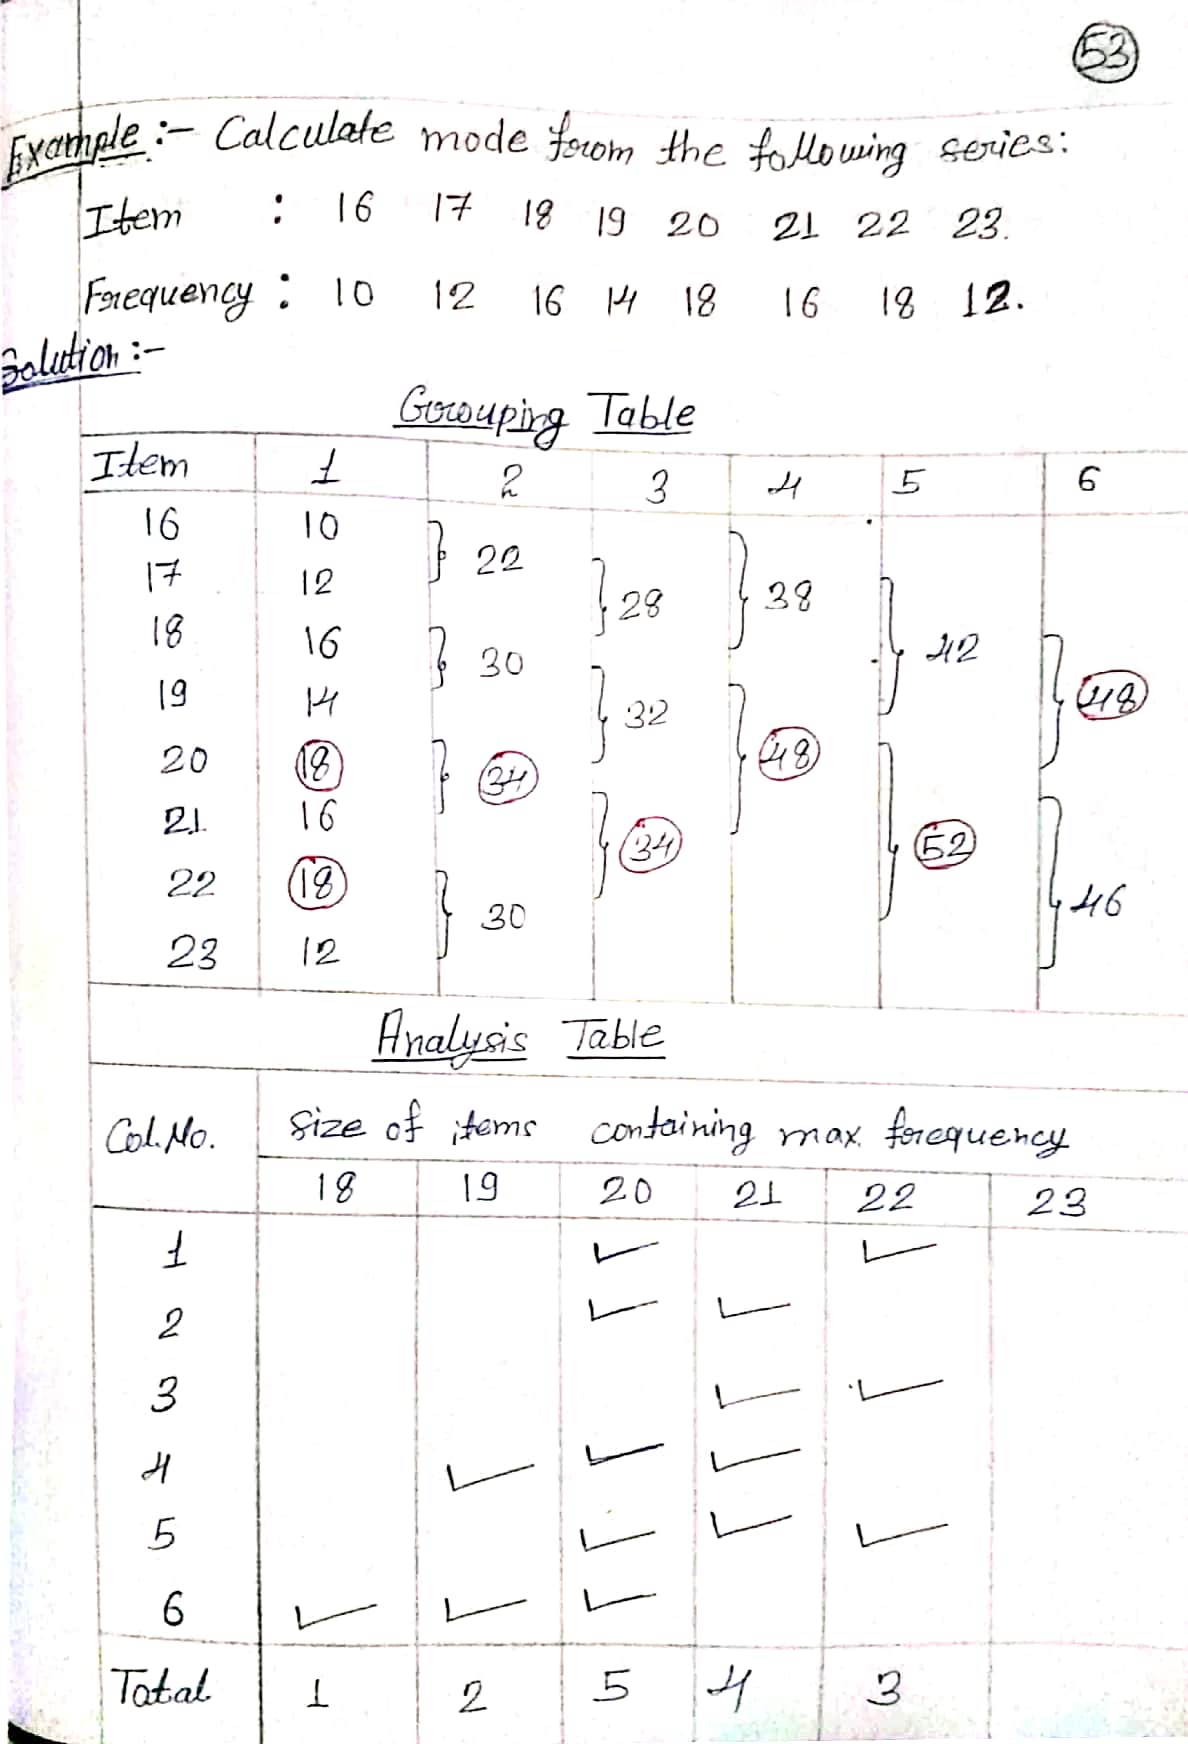 53
Example :- Calculate mode from the following series:
Item : 16 17 18 19 20 21 22 23.
Frequency : 10 12 16 14 18 16 18 12.
Solution :-
Grouping Table
Item 1 2 3 4 5 6
16 10
22
17 12
28 38
18 16
30 42
19 14
32 48
20 18
34 48
21 16
34 52
22 18
30 46
23 12
Analysis Table
Col. No. Size of items containing max. frequency
18 19 20 21 22 23
1 ✓ ✓
2 ✓ ✓
3 ✓ ✓
4 ✓ ✓ ✓
5 ✓ ✓ ✓
6 ✓ ✓ ✓
Total 1 2 5 4 3